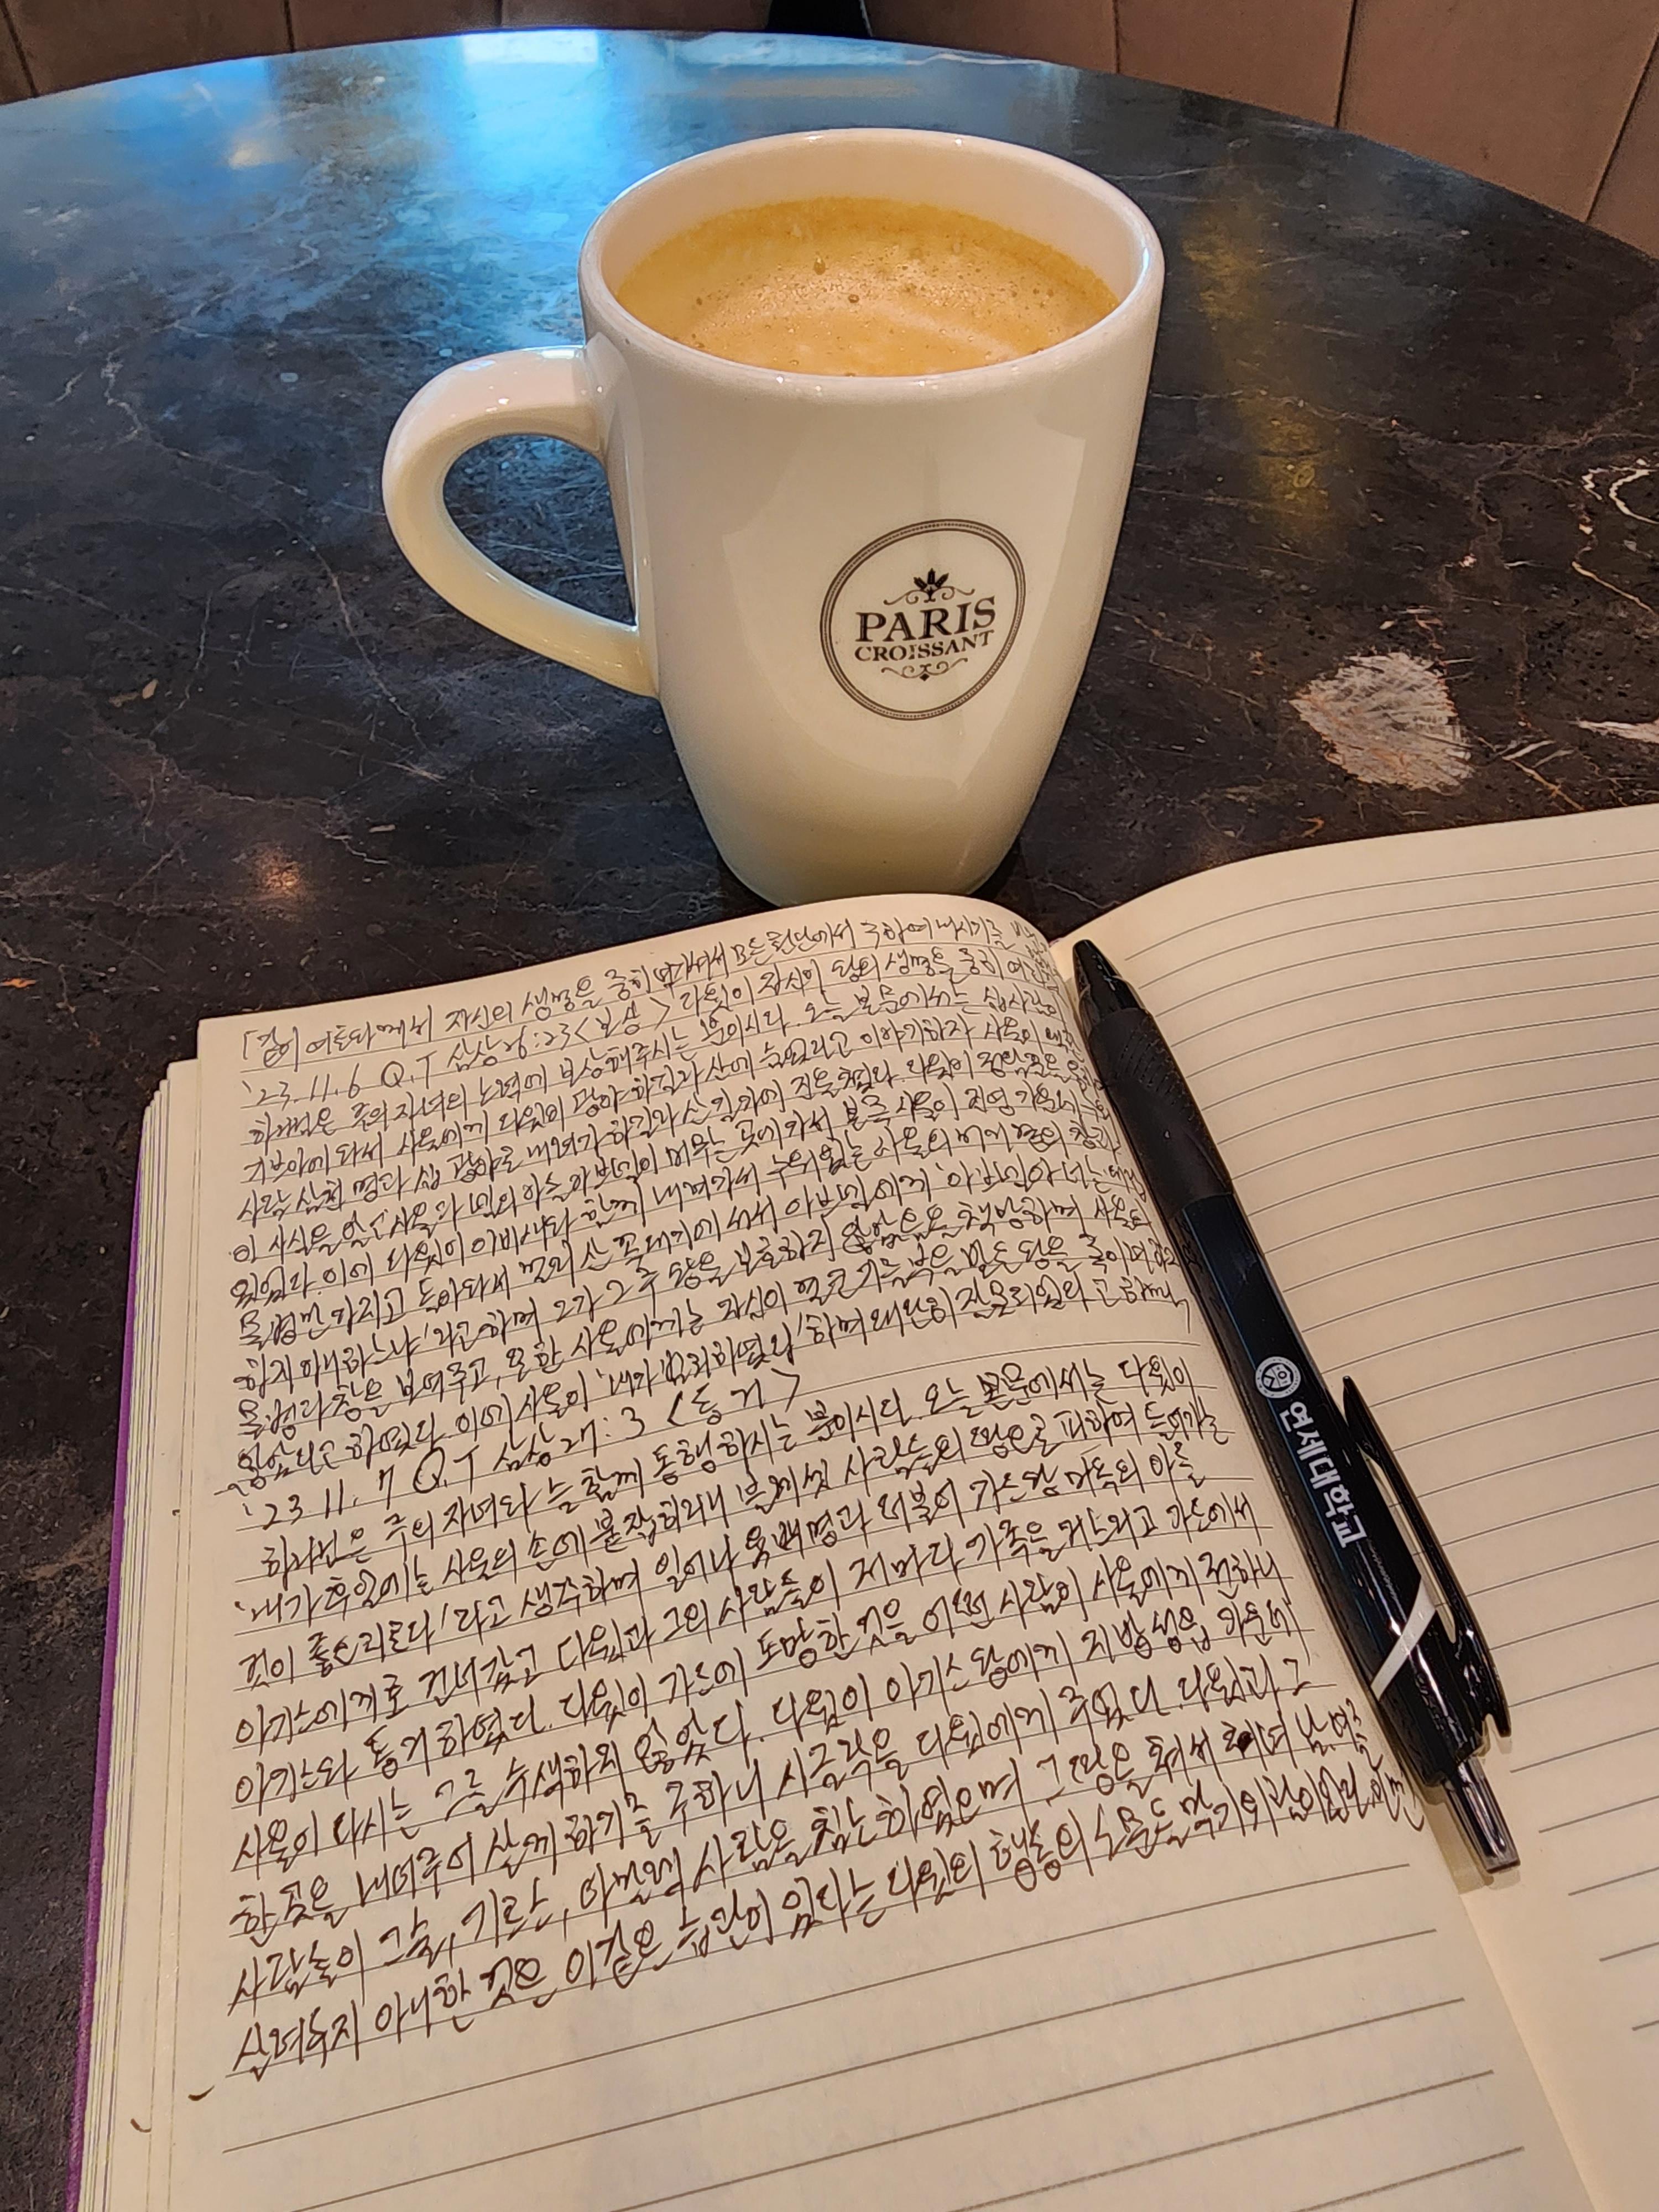 PARIS
CROISSANT
연세대학교
자신의 생명을 중히 여기셔서 모든 환난에서 구하여 내시기를
'23. 11. 6 Q.T 삼상26:23 <보상> 다윗이 자신이 왕의 생명을 중히
하나님은 주의 자녀의 노력에 보상해주시는 분이시다. 오늘 본문에서는 십 사람이
기브아에 와서 사울에게 다윗이 광야 하길라 산에 숨었다고 이야기하자 사울이
사람 삼천 명과 십 광야로 내려가 하길라 산 길가에 진을 쳤다. 다윗이 정탐꾼을
이 사실을 알고 사울과 넬의 아들 아브넬이 머무는 곳에 가서 본즉 사울이 진영 가운데
있었다. 이에 다윗이 아비새와 함께 내려가서 누워있는 사울의 머리 곁의 창과
물병만 가지고 돌아와서 멀리 산 꼭대기에 서서 아브넬에게 '아브넬아 너는
하지 아니하느냐'라고 하며 그가 그 주 왕을 보호하지 않았음을 책망하며 사울의
물병과 창을 보여주고, 또한 사울에게는 자신이 기름 부음 받은 왕을 죽이려
않았다고 하였다. 이에 사울이 '내가 범죄하였다' 하며 하며
'23. 11. 7 Q.T 삼상27:3 <동거>
하나님은 주의 자녀와 늘 함께 동행하시는 분이시다. 오늘 본문에서는 다윗이
'내가 후일에는 사울의 손에 붙잡히리니 블레셋 사람들의 땅으로 피하여 들어가는
것이 좋으리로다'라고 생각하며 일어나 육백명과 더불어 가드왕 마옥의 아들
아기스에게로 건너갔고 다윗과 그의 사람들이 저마다 가족을 거느리고 가드에서
아기스와 동거하였다. 다윗이 가드에 도망한 것을 어떤 사람이 사울에게 전하니
사울이 다시는 그를 수색하지 않았다. 다윗이 아기스 왕에게 지방 성읍 가운데
한 곳을 내려주어 살게 하기를 구하니 시글락을 다윗에게 주었다. 다윗과 그
사람들이 그술, 기르스, 아말렉 사람을 침노하였으며 그 땅을 쳐서 남녀를
살려두지 아니한 것은 이같은 습관이 있다는 다윗의 행동의